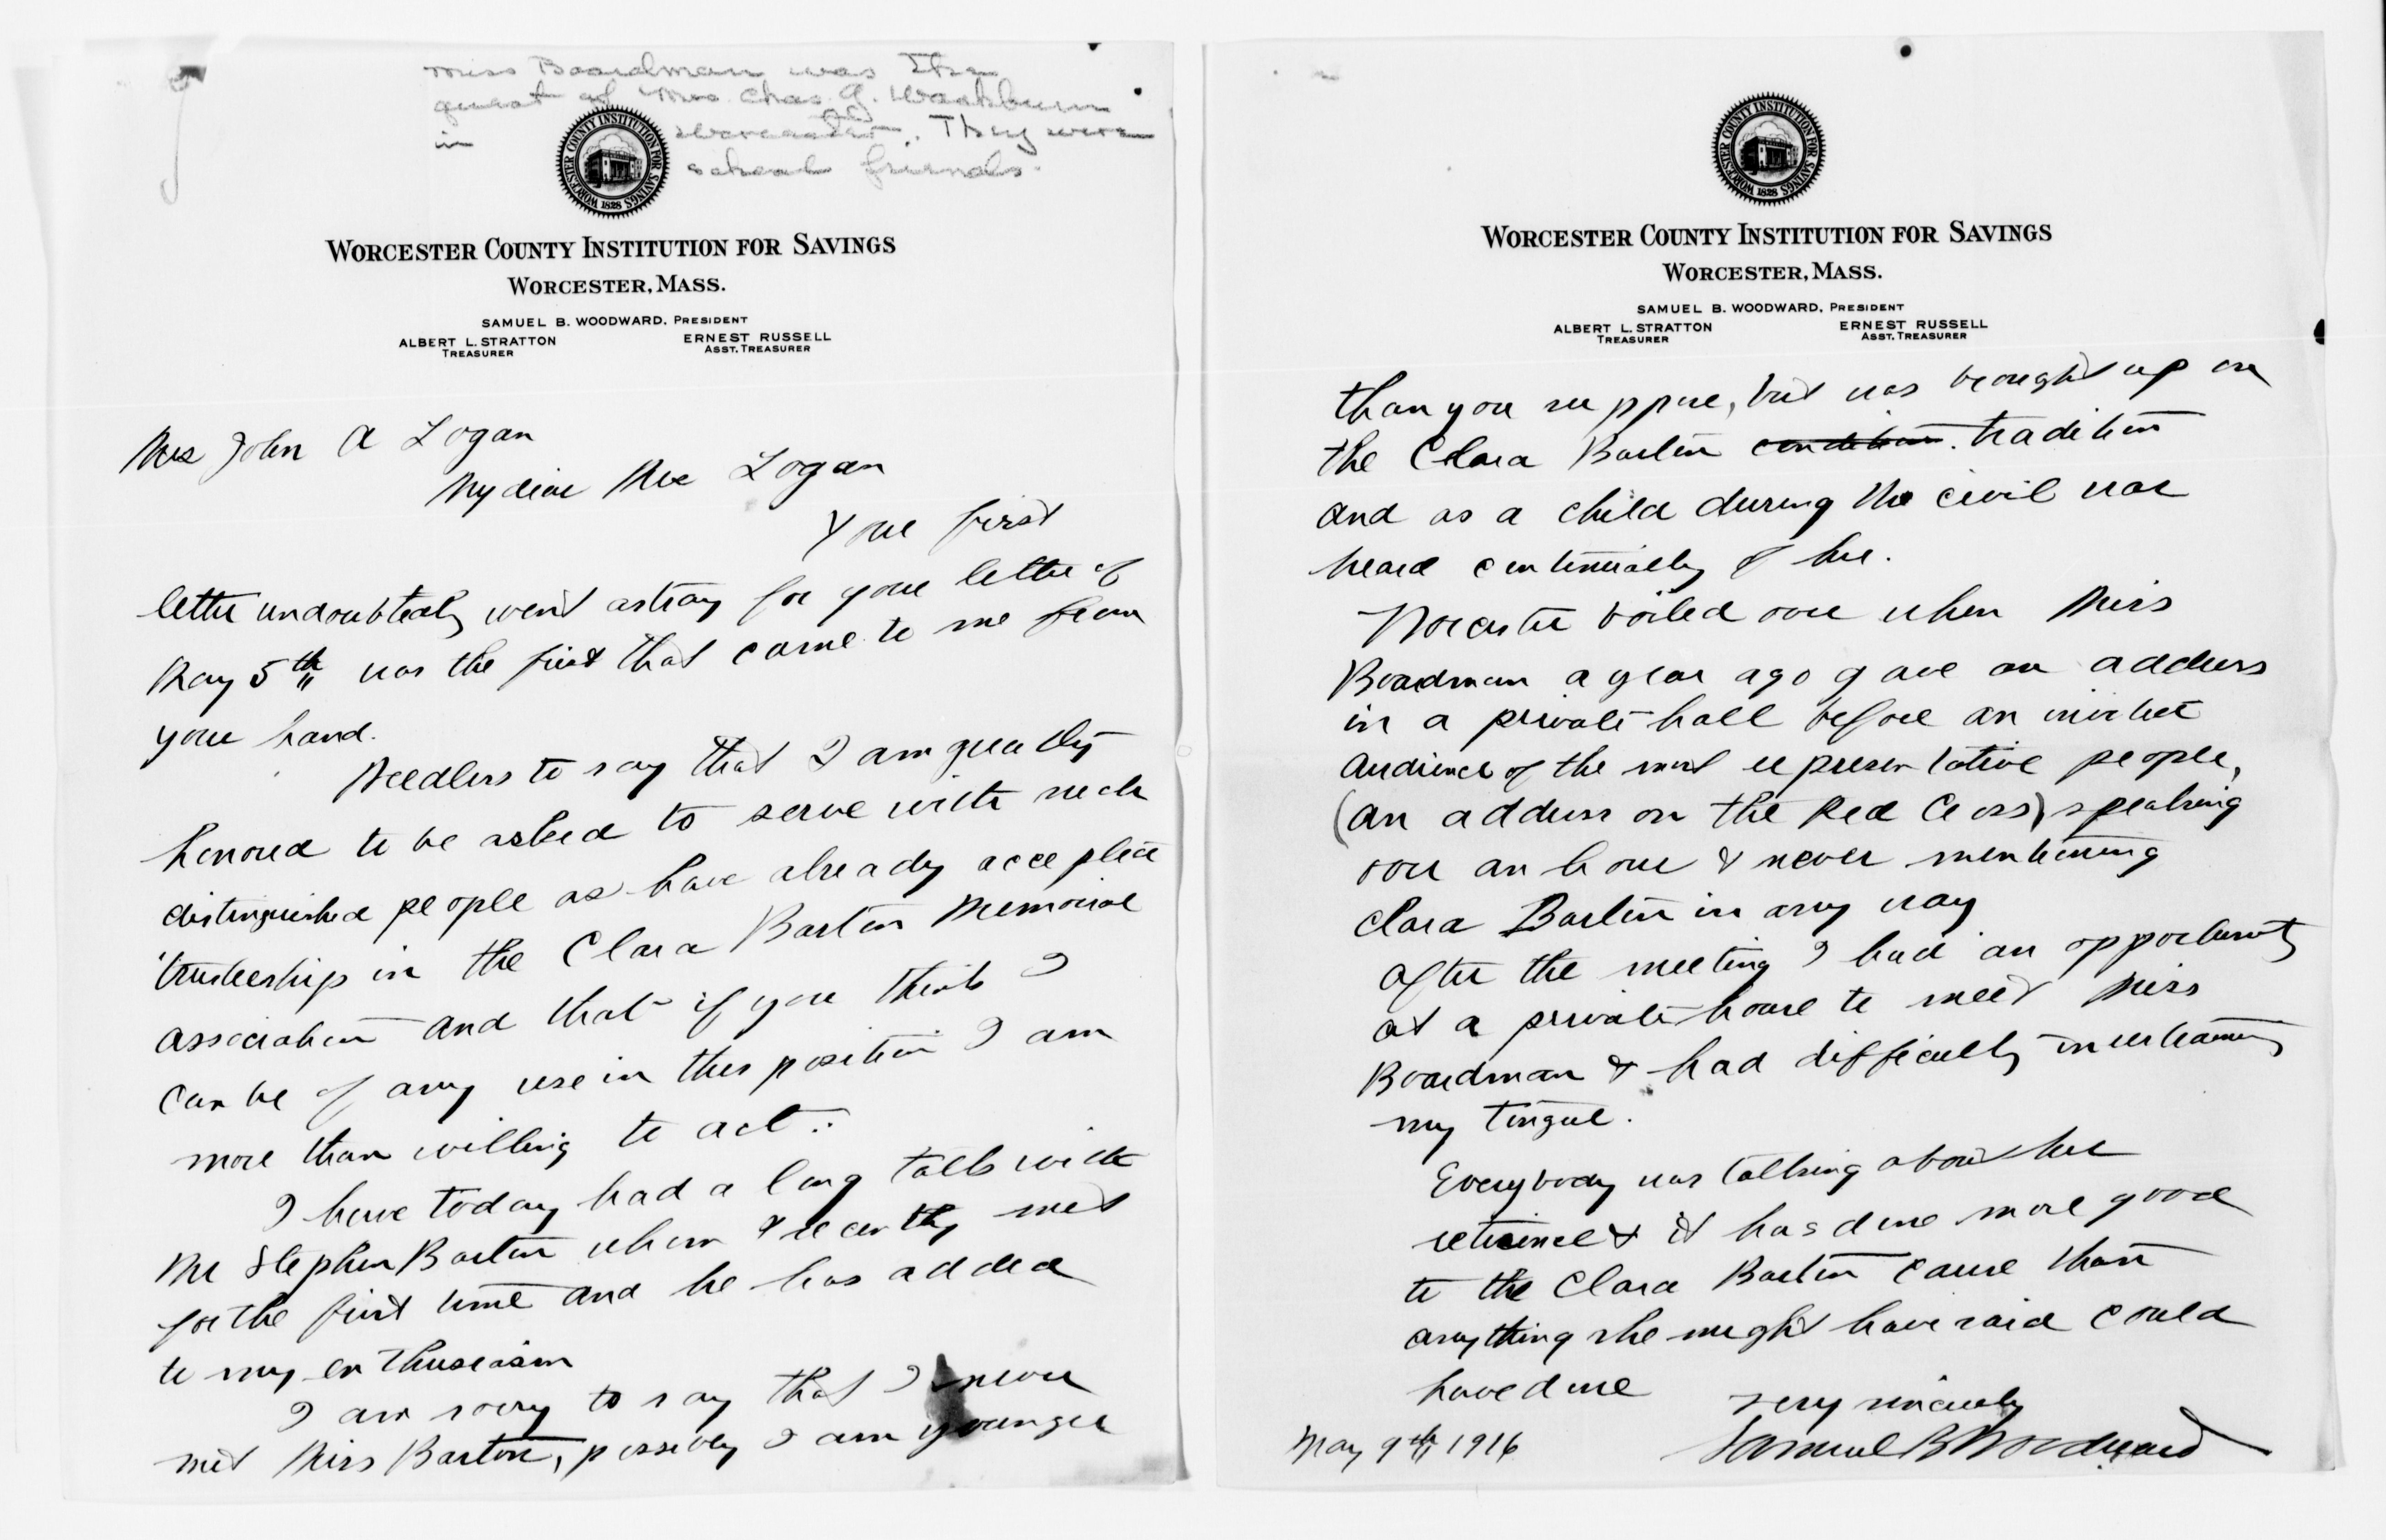 Miss Boardman was the
guest of Mrs. Chas. G. Washburn
in Worcester. They were
school friends.
WORCESTER COUNTY INSTITUTION FOR SAVINGS
1828
WORCESTER COUNTY INSTITUTION FOR SAVINGS
WORCESTER, MASS.
SAMUEL B. WOODWARD, PRESIDENT
ALBERT L. STRATTON
TREASURER
ERNEST RUSSELL
ASST. TREASURER
Mrs John A Logan
My dear Mrs Logan
Your first
letter undoubtedly went astray for your letter of
May 5th was the first that came to me from
your hand.
Needless to say that I am greatly
honored to be asked to serve with such
distinguished people as have already accepted
trusteeship in the Clara Barton Memorial
Association and that if you think I
can be of any use in this position I am
more than willing to act.
I have today had a long talk with
Mr Stephen Barton whom I recently met
for the first time and he has added
to my enthusiasm
I am sorry to say that I never
met Miss Barton, possibly I am younger
WORCESTER COUNTY INSTITUTION FOR SAVINGS
1828
WORCESTER COUNTY INSTITUTION FOR SAVINGS
WORCESTER, MASS.
SAMUEL B. WOODWARD, PRESIDENT
ALBERT L. STRATTON
TREASURER
ERNEST RUSSELL
ASST. TREASURER
than you suppose, but was brought up on
the Clara Barton condition. tradition
and as a child during the civil war
heard continually of her.
Worcester boiled over when Miss
Boardman a year ago gave an address
in a private hall before an invited
audience of the most representative people,
(an address on the Red Cross) speaking
over an hour & never mentioning
Clara Barton in any way
After the meeting I had an opportunity
at a private house to meet Miss
Boardman & had difficulty in restraining
my tongue.
Everybody was talking about her
reticence & it has done more good
to the Clara Barton cause than
anything she might have said could
have done
Very sincerely
May 9th 1916
Samuel B Woodward